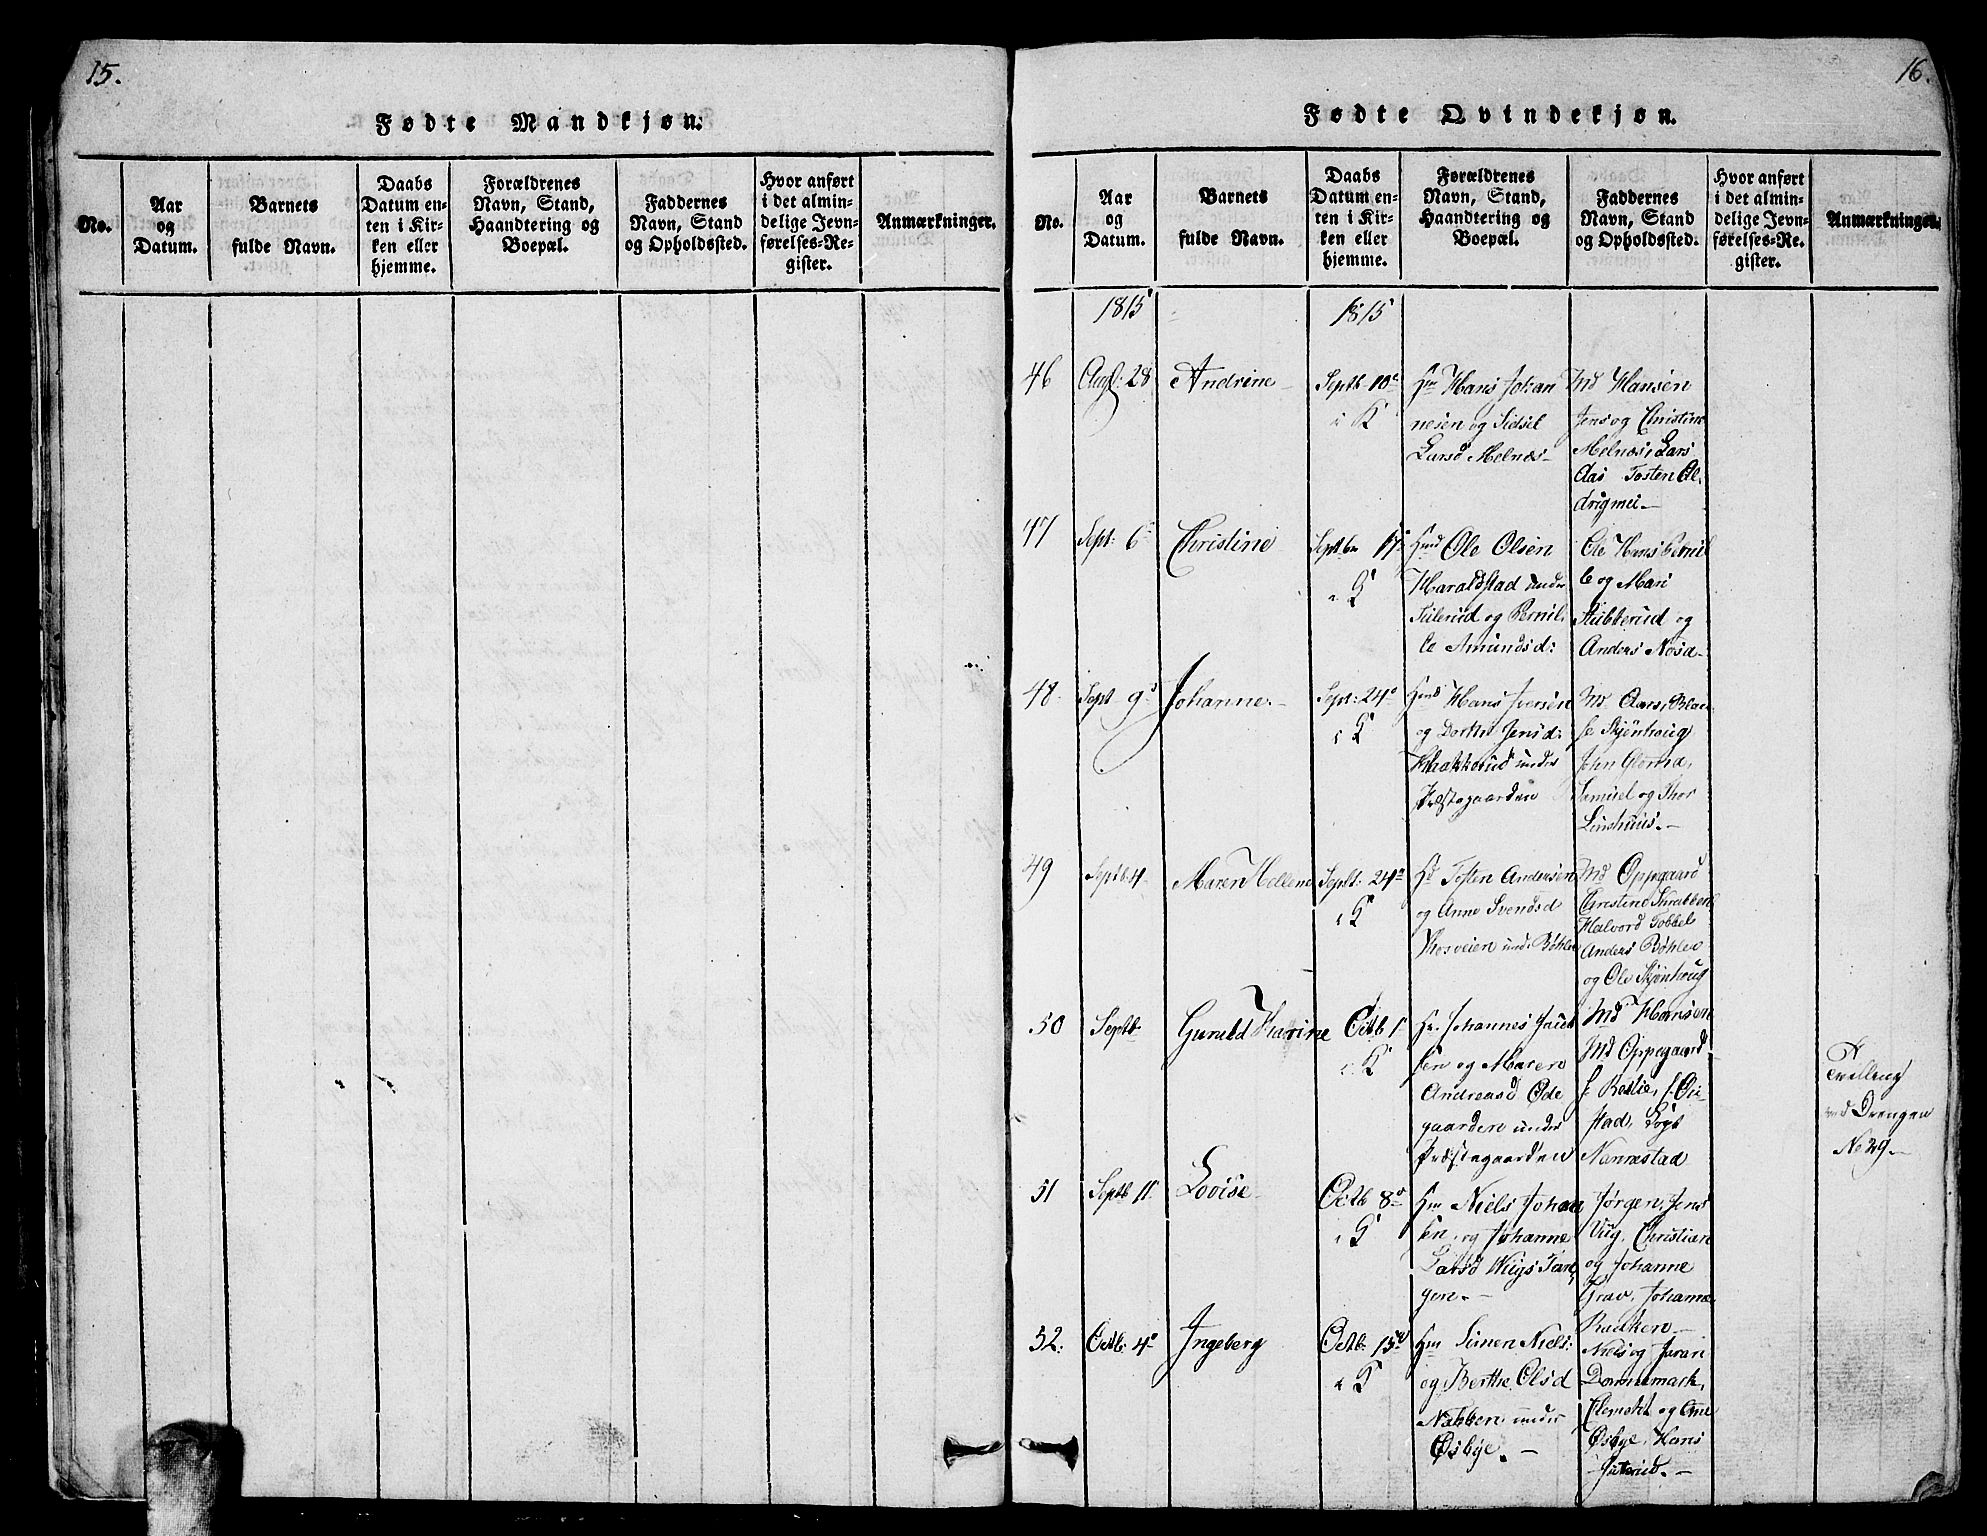 15.
Fødte Mandkjøn.
No.
Aar
og
Datum.
Barnets
fulde Navn.
Daabs
Datum en-
ten i Kir-
ken eller
hjemme.
Forældrenes
Navn, Stand,
Haandtering og
Boepæl.
Faddernes
Navn, Stand
og Opholdssted.
Hvor anført
i det almin-
delige Jevn-
førelses-Re-
gister.
Anmærkninger.
16.
Fødte Qvindekjøn.
No.
Aar
og
Datum.
Barnets
fulde Navn.
Daabs
Datum en-
ten i Kir-
ken eller
hjemme.
Forældrenes
Navn, Stand,
Haandtering og
Boepæl.
Faddernes
Navn, Stand
og Opholdssted.
Hvor anført
i det almin-
delige Jevn-
førelses-Re-
gister.
Anmærkninger.
1815
1815
46
Aug: 28
Andrine
Septb 10
i K
Hans Johan
nesen og Sidsel
Larsd Melnæs
Md Hansen
Jens og Christine
Melnæs, Lars
Aas Tosten Al-
drigmei.
47
Sept: 6
Christine
Septbr 17
K
Ole Olsen
Haraldstad under
og Pernil-
le Amundsd:
Ole Hans Pernil
le og Mari
Stubberud og
Anders
48
Sept 9
Johanne
Sept: 24
i K
Hans Iversen
og Dorthe Jensd:
under
Præstegaarden
Md Aars,
Skjønhaug
John Glenna,
Samuel og Thor
49
Septb 4
Maren Hellene
Septb: 24
i K
Tosten Andersen
og Anne Svendsd
und: Bøhler
Md Oppegaard
Christine
Halvord
Anders Bøhler
og Ole Skjønhaug
50
Septb
Guruld Karine
Octb 1
i K
Johannes
sen og Maren
Andreasd Øde
gaarden under
Præstegaarden
Md Hansen
Md Oppegaard
stad,
Nannestad
Tvilling
med Drengen
No 29
51
Septb 11
Lovise
Octb 8
i K
Niels Johan
sen og Johanne
Larsd
Jørgen, Jens
Christian
og Johanne
Grav, Johanne
52.
Octb: 4
Ingeberg
Octb 15
i K
Simen Niels:
og Berthe Olsd
Nabben under
Øsbye.
Niels og
Dannemark,
og Ane
Øsbye, Hans